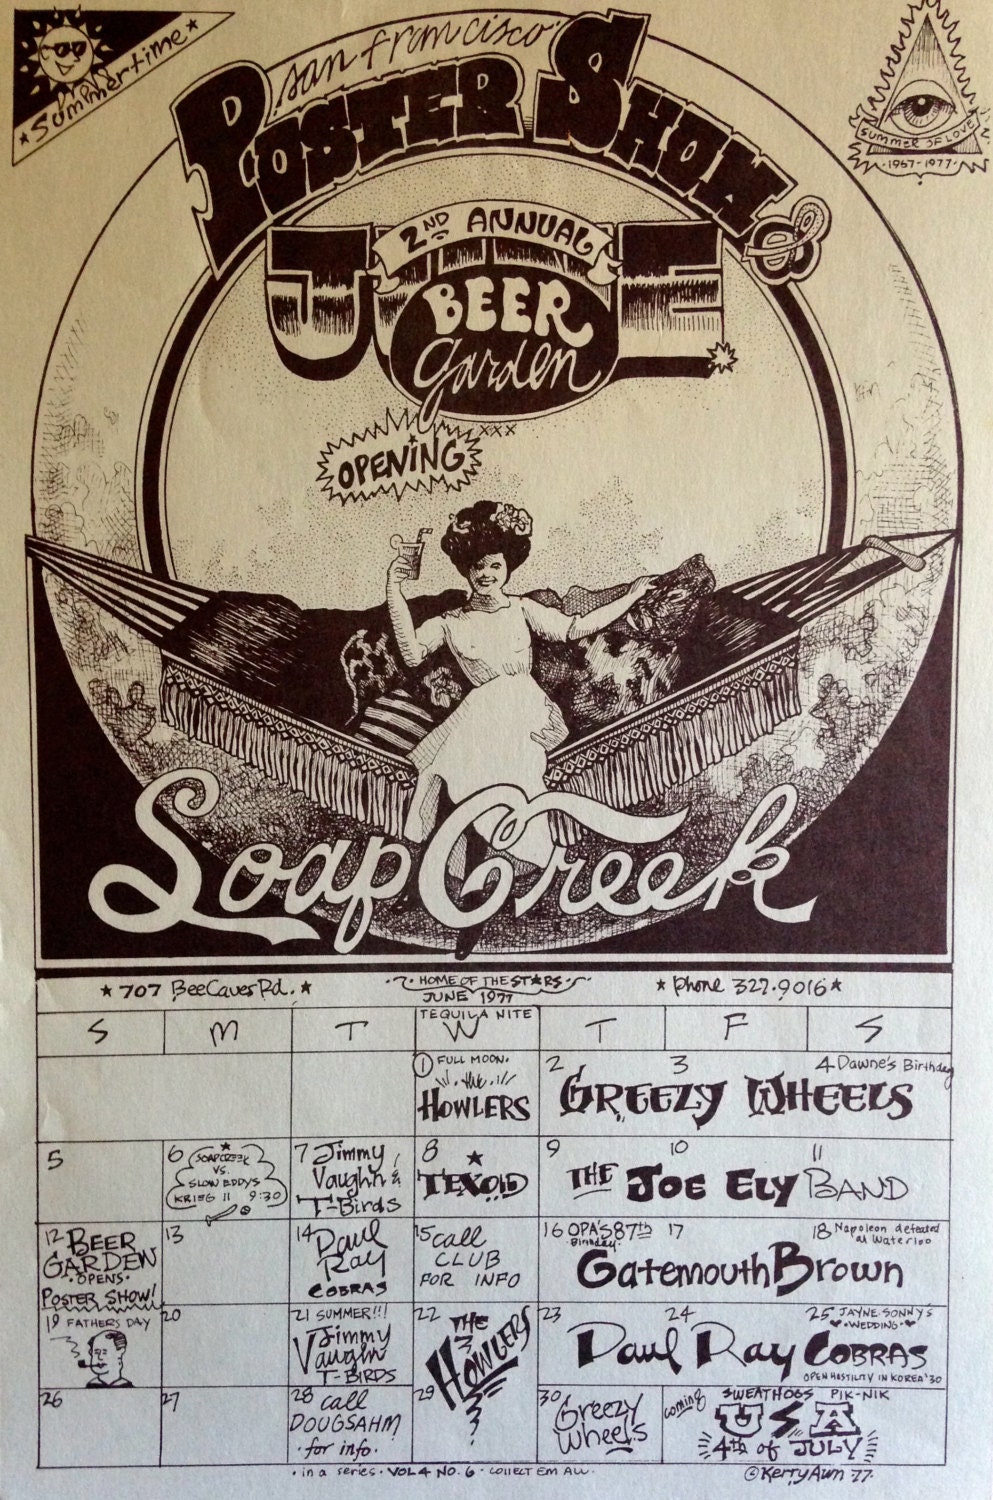 Summertime
san francisco
POSTER SHOW
&
SUMMER OF LOVE
·1967-1977·
2ND ANNUAL
JUNE
BEER
garden
XXX
OPENING
Soap Creek
★707 BeeCaves Rd.★
HOME OF THE ST★RS
★ phone 327·9016★
JUNE 1977
TEQUILA NITE
S M T W T F S
1 FULL MOON.
THE
HOWLERS
2 3 4 Dawne's Birthday
GREEZY WHEELS
5
6 SOAPCREEK
VS.
SLOW EDDYS
KRIEG II 9:30
7 Jimmy
Vaughn &
T-Birds
8
TEXOID
9 10 11
THE JOE ELY BAND
12 BEER
GARDEN
·OPENS·
POSTER SHOW!
13
14 Paul
Ray
COBRAS
15 call
CLUB
FOR INFO
16 OPA'S 87th
Birthday·
17
18 Napoleon defeated
at Waterloo
Gatemouth Brown
19 FATHERS DAY
20
21 SUMMER!!!
Jimmy
Vaughn
T-BIRDS
22 THE
HOWLERS
23 24 25 JAYNE·SONNY'S
·WEDDING·
Paul Ray COBRAS
OPEN HOSTILITY IN KOREA '50
26
27
28 call
DOUGSAHM
·for info·
29
30 Greezy
Wheels
coming SWEATHOGS PIK-NIK
USA
4th of JULY
·in a series·VOL 4 NO. 6·COLLECT EM ALL·
©Kerry Awn 77·